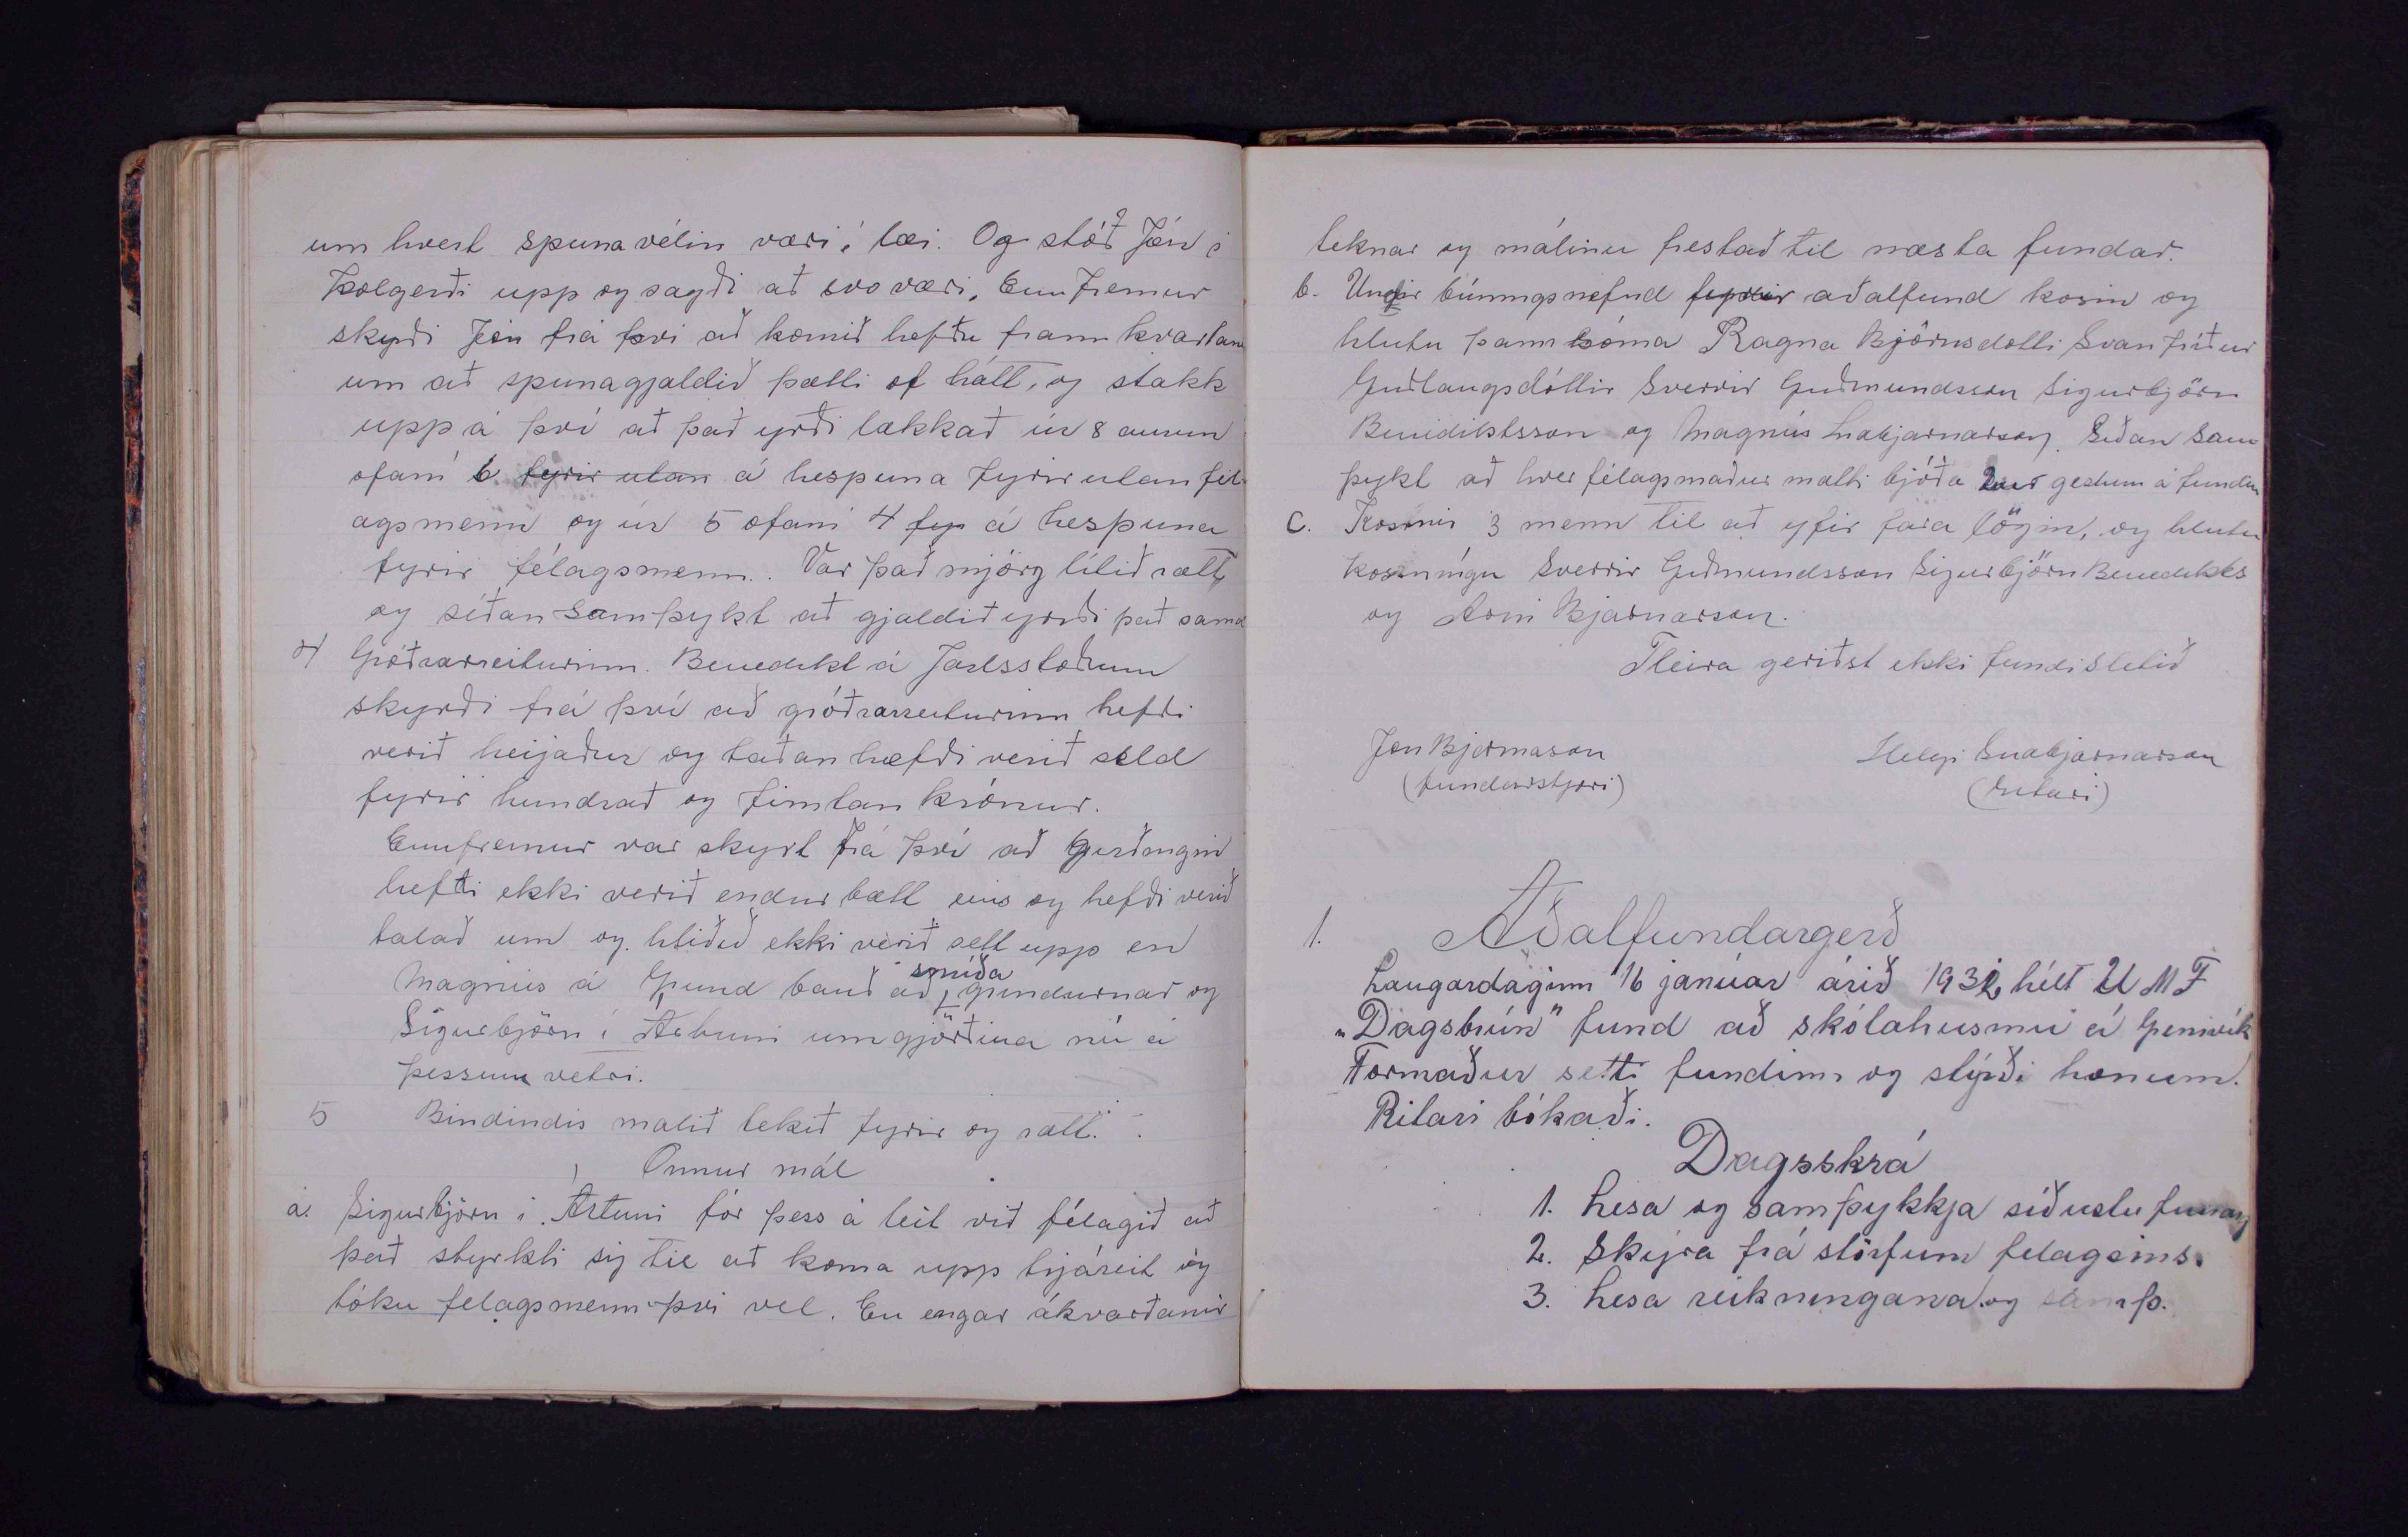 um hvert spunavélin væri í læi. Og stóð Jón í
Kolgerði upp og sagði að svo væri. Ennfremur
skyrði Jón frá því að komið hefðu fram kvartanir
um að spunagjaldið þætti of hátt, og stakk
uppá því að það yrði lækkað úr 8 aurum
ofaní 6 fyrir utan á hespuna fyrir utan fél-
agsmenn og úr 5 ofaní 4 fyr á hespuna
fyrir félagsmenn. Var það mjörg lítið rætt
og síðan samþykt að gjaldið yrði það sama
4 Gróðrarreiturinn. Benedikt á Jarlsstöðum
skyrði frá því að gróðrarreiturinn hefði
verið heijaður og taðan hæfði verið seld
fyrir hundrað og fimtan krónur.
Ennfremur var skyrt frá því að girðingin
hefði ekki verið endurbætt eins og hefði verið
talað um og hliðið ekki verið sett upp en
Magnús á Grund bauð að smíða grindurnar og
Sigurbjörn í Ártuni umgjörðina nú á
þessum vetri.
5 Bindindis malið tekið fyrir og rætt.
Önnur mál
a. Sigurbjörn í Ártuni fór þess á leit við félagið að
það styrkti sig til að koma upp trjáreit og
tóku felagsmenn því vel. En engar ákvarðanir
teknar og málinu frestað til næsta fundar.
b. Undir búningsnefnd fyrir aðalfund kosin og
hlutu þann sóma Ragna Björnsdotti Svanfríður
Guðlaugsdóttir Sverrir Guðmundsson Sigurbjörn
Benidiktsson og Magnús Snæbjarnarson. Síðan sam
þykt að hver félagsmaður mætti bjóða 2ur gestum á fundin
C. Kosnir 3 menn til að yfir fara lögin, og hlutu
kosníngu Sverrir Guðmundsson Sigurbjörn Benedikts
og Árni Bjarnarson.
Fleira geriðst ekki fundislitið
Jón Bjarnason
(fundarstjóri)
Helgi Snæbjarnarson
(ritari)
1. Aðalfundargerð
Laugardaginn 16 janúar árið 1932 hélt U M F
„Dagsbrún" fund að skólahusinu á Grenivík
Formaður setti fundinn og stýrði honum.
Ritari bókaði.
Dagsskrá
1. Lesa og samþykkja síðustu fundarg
2. Skýra frá störfum felagsins.
3. Lesa reikningana og samþ.